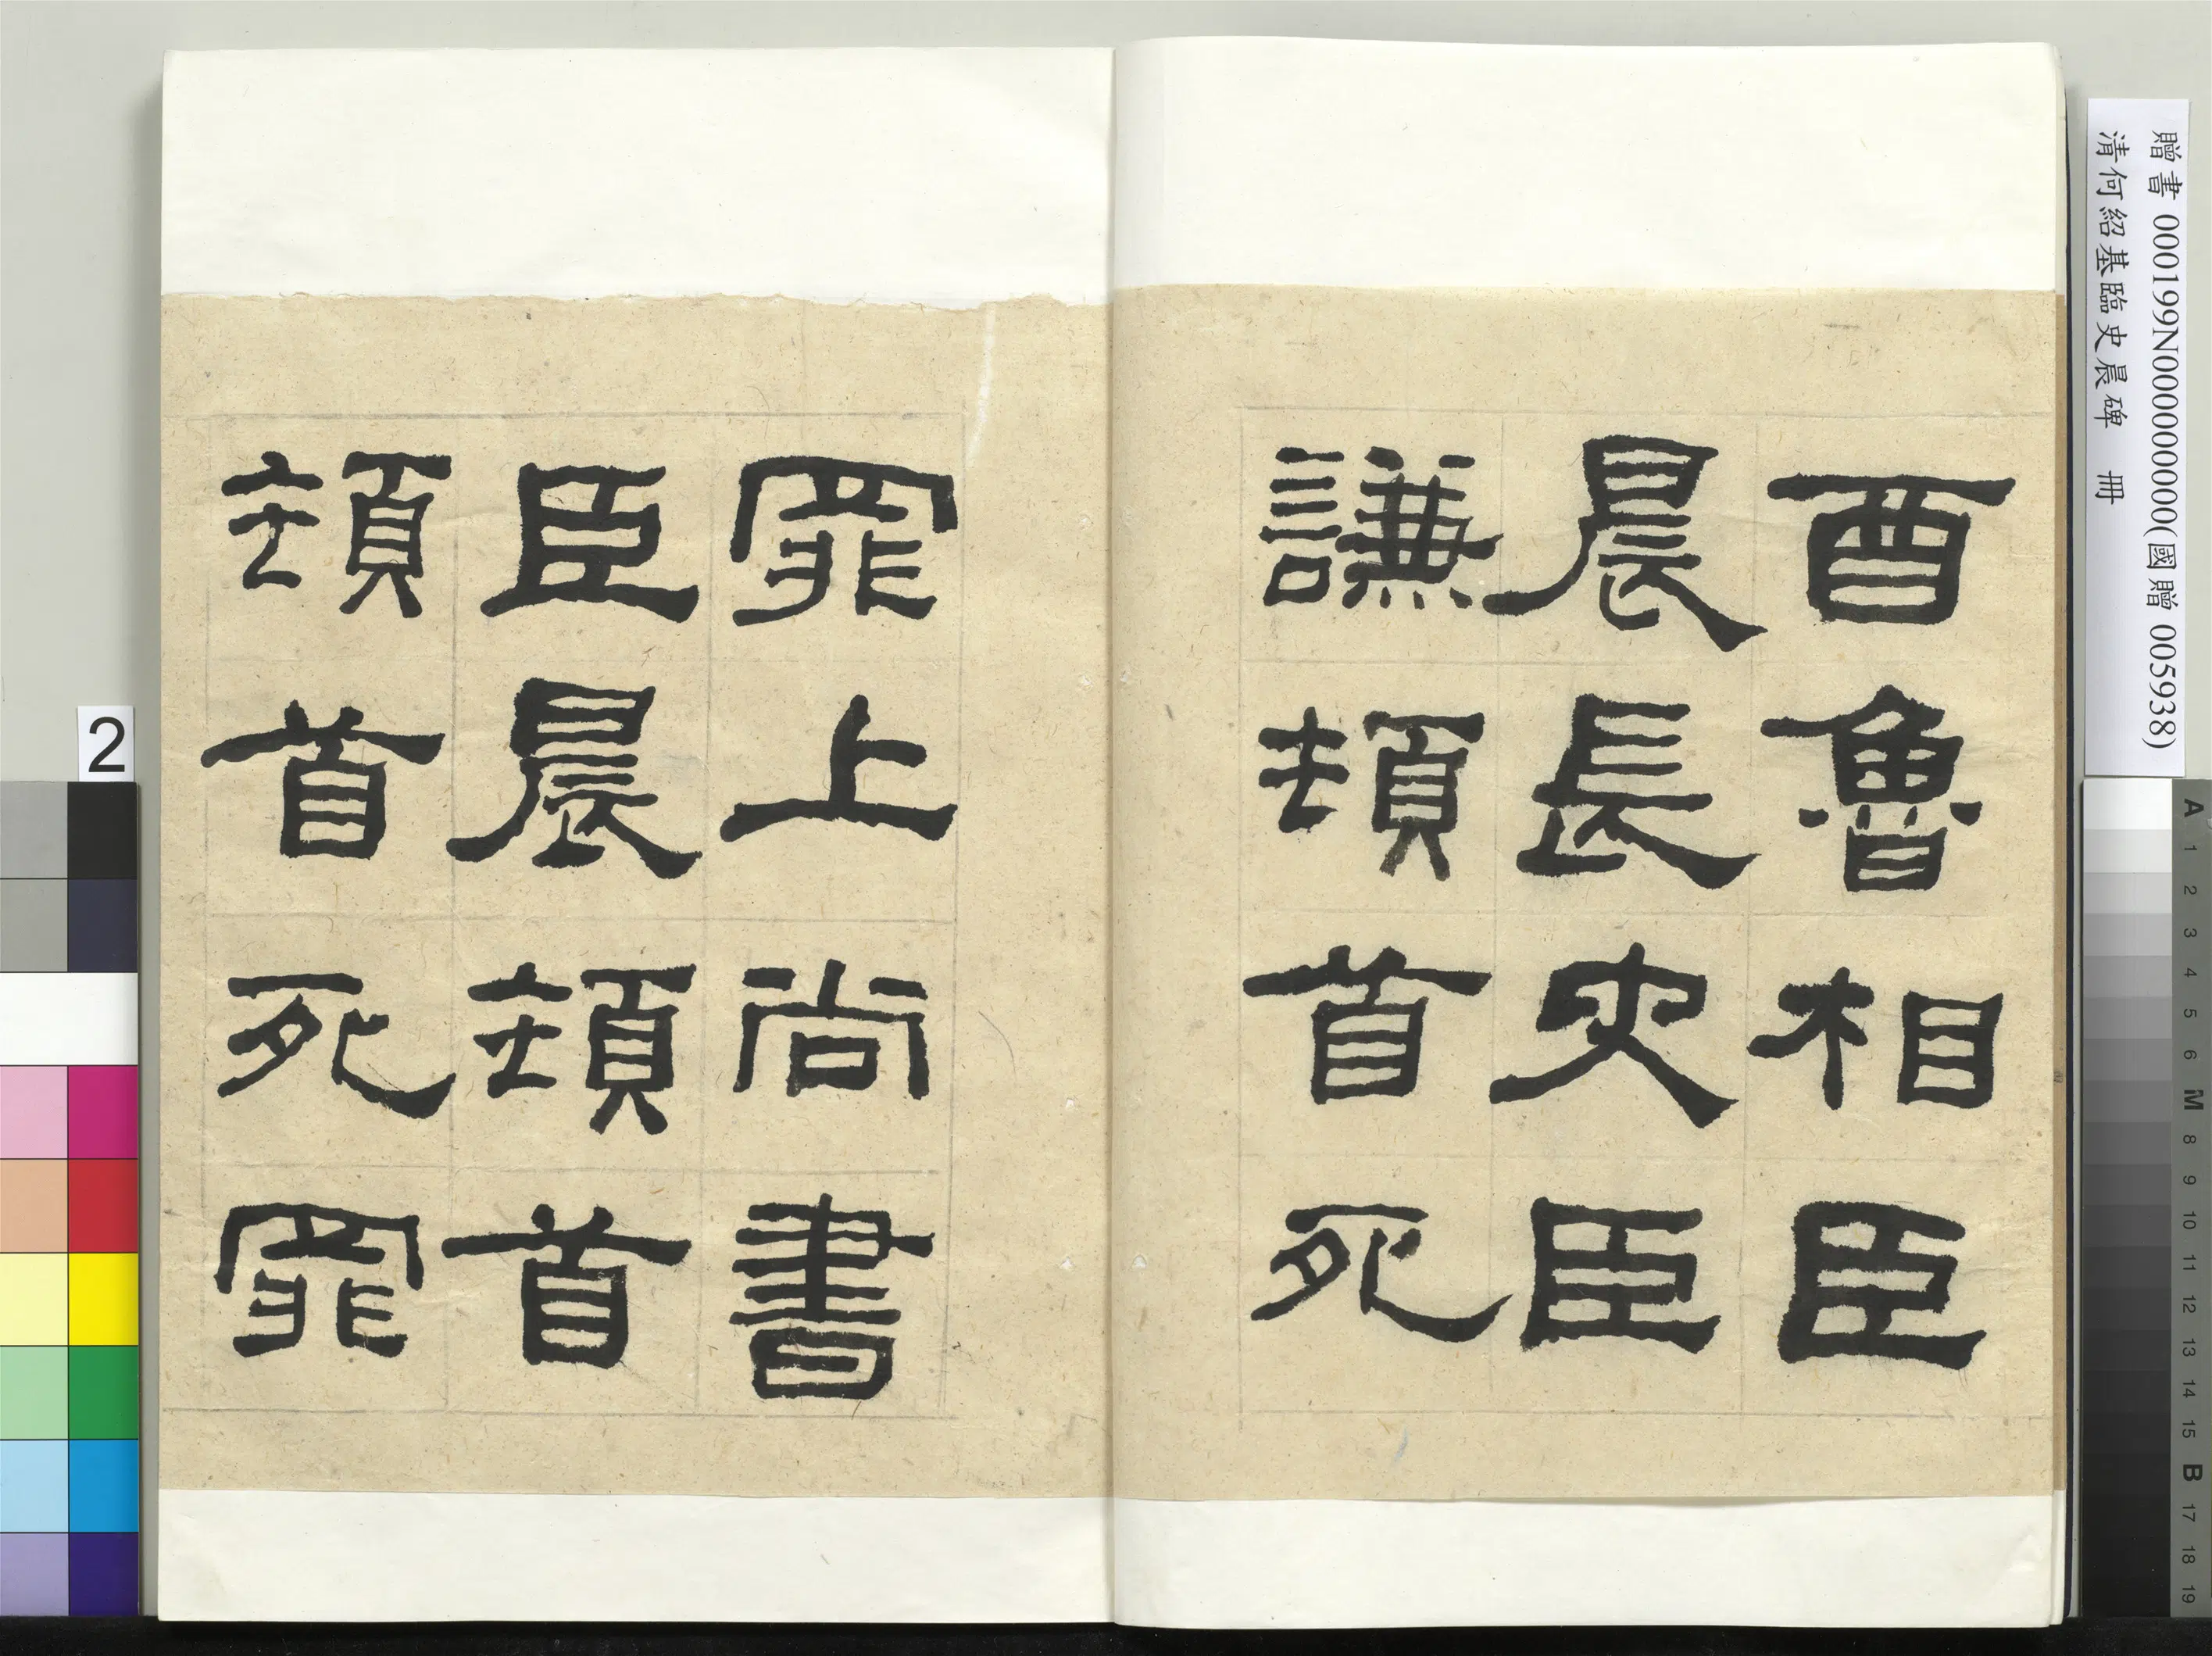 酉魯相臣
晨長史臣
謙頓首死
罪上尚書
臣晨頓首
頓首死罪
贈書 000199N000000000(國贈 005938)
清何紹基臨史晨碑 冊
2
A 1 2 3 4 5 6 M 8 9 10 11 12 13 14 15 B 17 18 19